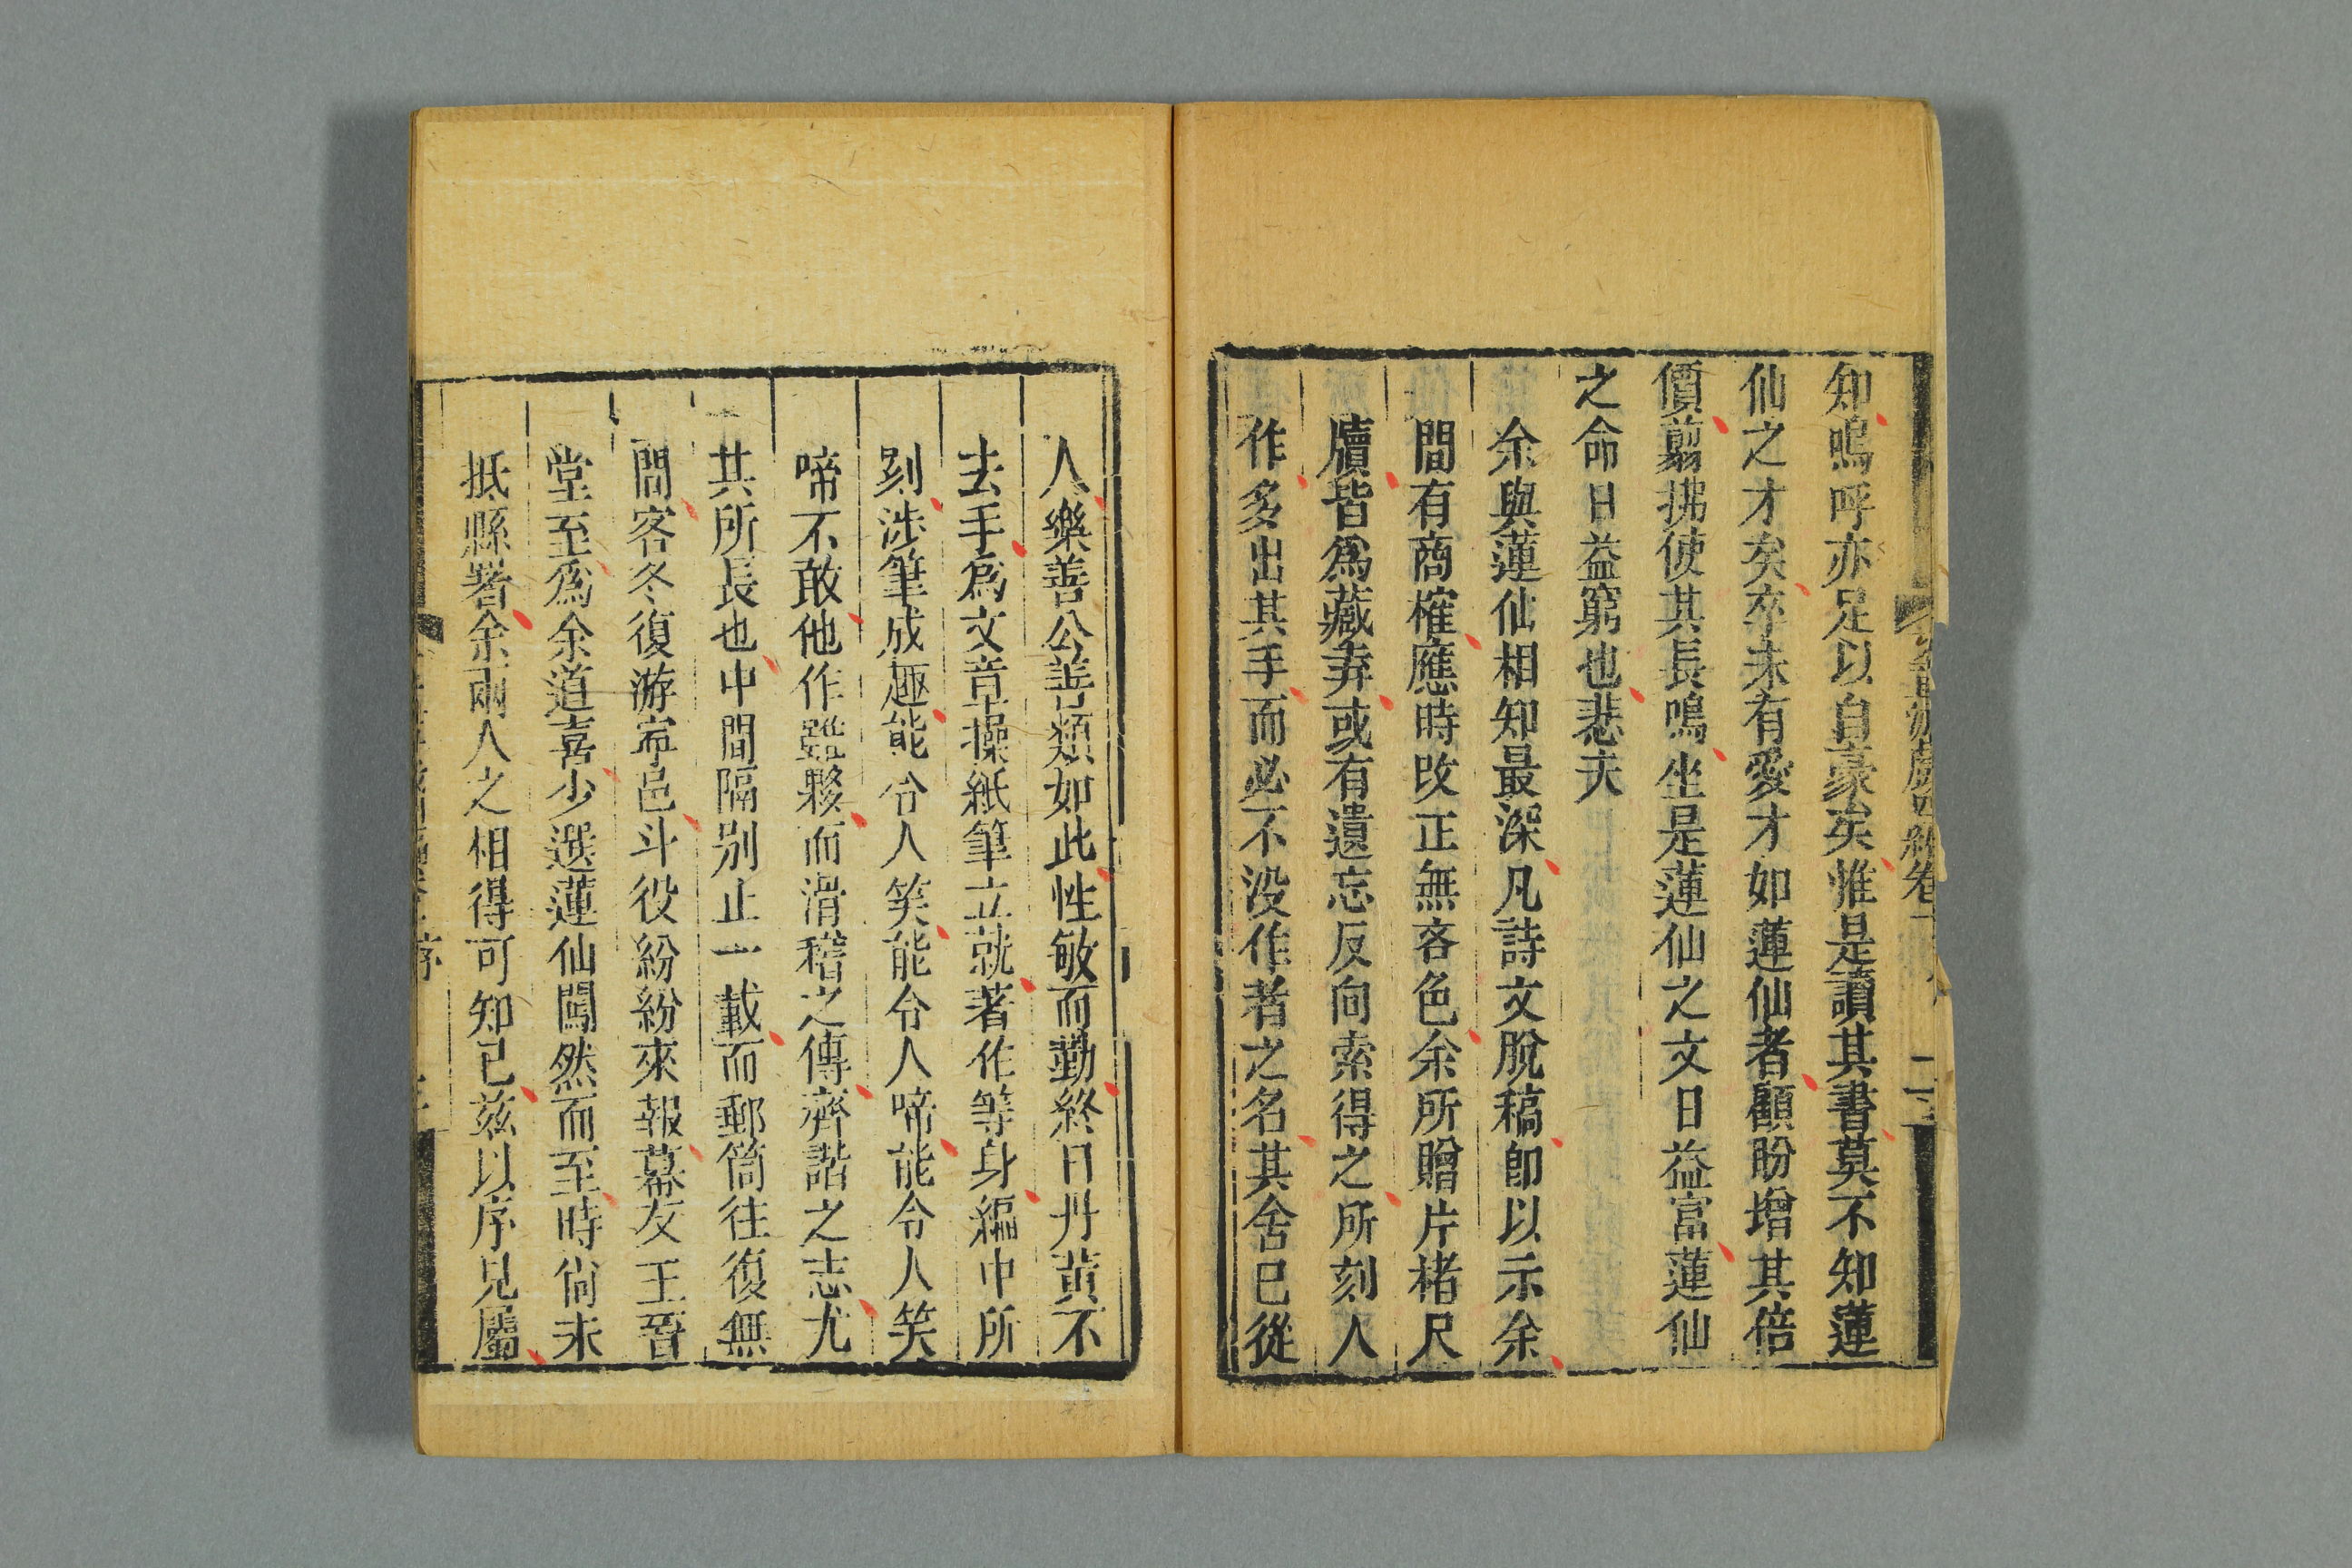 知嗚呼亦足以自豪矣惟是讀其書莫不知蓮
仙之才矣卒未有愛才如蓮仙者顧盼增其倍
價翦拂使其長鳴坐是蓮仙之文日益富蓮仙
之命日益窮也悲夫
余與蓮仙相知最深凡詩文脫稿即以示余
間有商榷應時改正無吝色余所贈片楮尺
牘皆為藏弆或有遺忘反向索得之所刻人
作多出其手而必不没作者之名其舍已從
人樂善公善類如此性敏而勤終日丹黃不
去手為文章操紙筆立就著作等身編中所
刻涉筆成趣能令人笑能令人啼能令人笑
啼不敢他作雖夥而滑稽之傳齊諧之志尤
其所長也中間隔别止一載而郵筒往復無
間客冬復游甯邑斗役紛紛來報幕友王晉
堂至為余道喜少選蓮仙闖然而至時尙未
抵縣署余兩人之相得可知已兹以序見屬